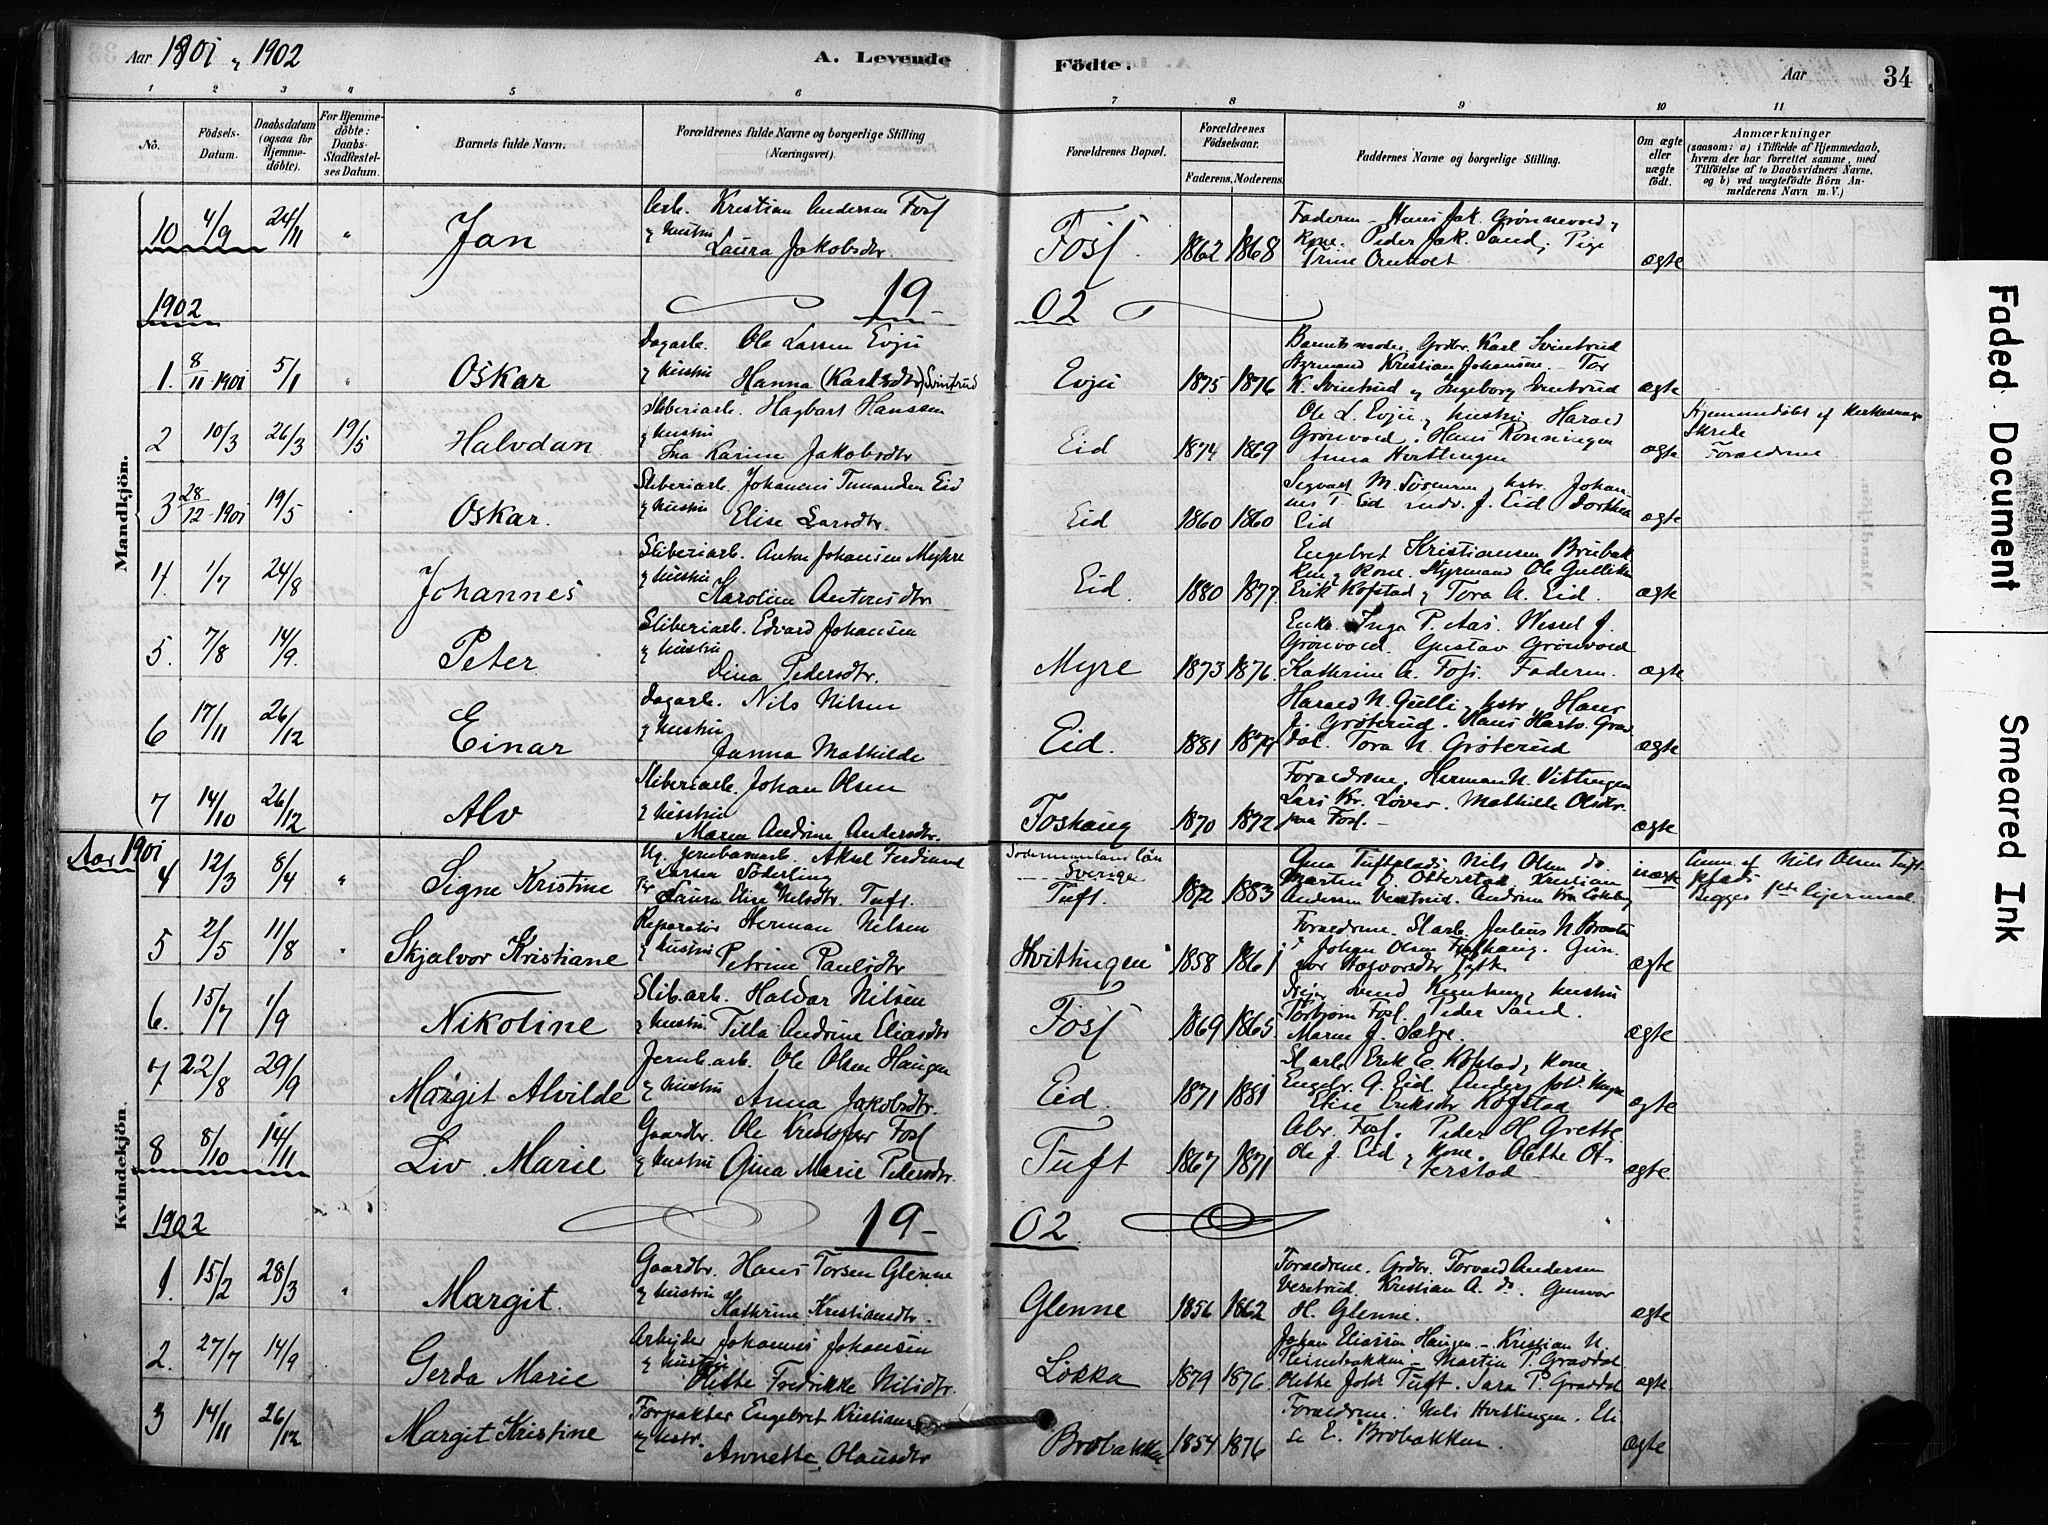 Aar 1901 & 1902 A. Levende Födte. Aar 34
1 2 3 4 5 6 7 8 9 10 11
No. Födsels-Datum. Daabsdatum (ogsaa for Hjemmedöbte). For Hjemmedöbte: Daabs-Stadfæstelses Datum. Barnets fulde Navn. Forældrenes fulde Navne og borgerlige Stilling (Næringsvei). Forældrenes Bopæl. Forældrenes Födselsaar. Faderens. Moderens. Faddernes Navne og borgerlige Stilling. Om ægte eller uægte födt. Anmærkninger (saasom: a) i Tilfælde af Hjemmedaab, hvem der har forrettet samme, med Tilföielse af to Daabsvidners Navne, og b) ved uægtefödte Börn Anmelderens Navn m. V.)
Mandkjön.
10 4/9 24/11 " Jan Arb. Kristian Andersen Foss & hustru Laura Jakobsdtr. Foss. 1862 1868 Faderen - Hans Jak. Grönnevold & Kone. Peder Jak. Sand, Pige Trine ægte
1902 19- 02
1. 8/11 1901 5/1 " Oskar Dagarb. Ole Larsen Evju & hustru Hanna (Karlsdtr) Svintrud Evju 1875 1876 Barnets moder. Grdbr. Karl Svintrud Styrmand Kristian Johansen - Tor K. Svintrud & Ingeborg Svintrud ægte
2 10/3 26/3 19/5 Halvdan Sliberiarb. Hagbart Hanssen & hustru Ina Karine Jakobsdtr Eid 1874 1869 Ole L. Evju & hustru, Harald Grönvold. Hans Rönningen Anna Hvittingen ægte Hjemmedöbt af Skrede Forældrene
3 28/12 1901 19/5 Oskar. Sliberiarb. Johannes Eid & hustru Elise Larsdtr. Eid 1860 1860 Segvart M. Sörensen, hstr. Johannes T. Eid J. Eid Dorthea Eid ægte
4. 1/7 24/8 Johannes Sliberiarb. Anton Johansen Myhre & hustru Karoline Antonsdtr Eid. 1880 1877. Engebret Kristiansen Brubakken & Kone. Styrmand Ole Gulliksen Erik Kofstad & Tora A. Eid. ægte
5. 7/8 14/9. Peter. Sliberiarb. Edvard Johansen & hustru Dina Pedersdtr. Myre 1873 1876. Enke. Inga P. Aas. Wessel J. Grönvold. Gustav Grönvold Kathrine A. Foss. Faderen. ægte
6 17/11 26/12 Einar Dagarb. Nils Nilsen & hustru Janna Mathilde Eid. 1881 1879 Harald N. Gulli & hstr. Hans J. Gröterud. Hans Graddal. Tora N. Gröterud ægte
7 14/10 26/12 Alv Sliberiarb. Johan Olsen & hustru Maren Andrine Andersdtr. Foshaug 1870 1872 Forældrene. Herman N. Vittingen Lars Kr. Löver. Mathilde Olsdtr. fra Foss. - ægte
Aar 1901
Kvindekjön.
4 12/3 8/4 " Signe Kristine Ug. Jernbanearb. Aksel Ferdinand Larsen Söderling Pr Laura Elise Nilsdtr. Tuft. Södermanlans län Sverige Tuft. 1872 1883 Gina Tuftplads Nils Olsen do Martin O. Otterstad. Kristian Andersen Vestrud. Andrine uægte Anm. af Nils Olsen Tuft-plads Begges 1ste Leiermaal
5 2/5 11/8 " Skjalvor Kristiane Reparatör Herman Nilsen & hustru Petrine Paulsdtr Hvittingen 1858 1861 Forældrene. Slarb. Julius N. Johan Olsen Gunvor Halvorsdtr ægte
6. 15/7 1/9 Nikoline Slib.arb. Haldor Nilsen & hustru Tilla Andrine Eliasdtr Foss 1869 1865 Svend & hustru Torbjörn Foss. Peder Sand. Maren J. Sætre ægte
7 22/8 29/9 Margit Alvilde Jernb.arb. Ole Olsen Haugen & hustru Anna Jakobsdtr. Eid. 1871 1881 Slarb. Erik E. Kofstad & Kone Engebr. G. Eid. Anders Elise Eriksdtr Kofstad ægte
8 8/10 14/11 Liv Marie Gaardbr. Ole Foss & hustru Gina Marie Pedersdtr. Tuft 1867 1871 Abr. Foss. Peder H. Grette Ole J. Eid & Kone. Olette Otterstad - ægte.
1902 19- 02
1. 15/2 28/3 " Margit. Gaardbr. Hans Torsen Glenne & hustru Kathrine Kristiansdtr. Glenne 1856 1862 Forældrene. Grdbr. Torvald Andersen Vestrud. Kristian A. do. Gunvor H. Glenne. ægte
2. 27/7 14/9 Gerda Marie Arbeider Johannes Johansen & hustru Olette Fredrikke Nilsdtr. Lökka 1879 1876 Johan Eliassen Haugen - Kristian N. - Martin P. Graddal Olette Johs. Tuft. Sara P. Graddal ægte
3 14/11 26/12 Margit Kristine Forpakter Engebret Kristiansen & hstr. Annette Olausdtr Brobakken 1854 1876 Forældrene. Nils Hvittingen. Elise E. Brobakken. ægte
Faded Document
Smeared Ink